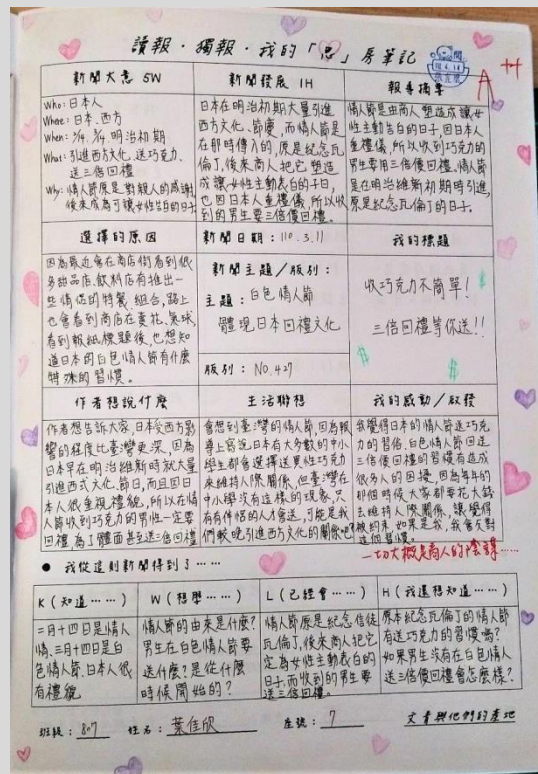 讀報·獨報·我的「思」房筆記
A++
新聞大意 5W
Who: 日本人
Where: 日本、西方
When: 2/14、3/14 明治初期
What: 引進西方文化、送巧克力、
送三倍回禮
Why: 情人節原是對親人的感謝
後來成為可讓女性告白的日子
新聞發展 1H
日本在明治初期大量引進
西方文化、節慶,而情人節是
在那時傳入的,原是紀念瓦
倫丁,後來商人把它塑造
成讓女性主動表白的子日,
也因日本人重禮儀,所以收
到的男生要三倍價回禮。
報導摘要
情人節是由商人塑造成讓女
性主動告白的日子,因日本人
重禮儀,所以收到巧克力的
男生要用三倍價回禮。情人節
是在明治維新初期時引進,
原是紀念瓦倫丁的日子。
選擇的原因
因為最近會在商店街看到很
多甜品店、飲料店有推出一
些情侶的特製組合,路上
也會看到商店在賣花、氣球,
看到報紙標題後,也想知
道日本的白色情人節有什麼
特殊的習慣。
新聞日期:110.3.11
新聞主題/版別:
主題:白色情人節
體現日本回禮文化
版別:NO.427
我的標題
收巧克力不簡單!
三倍回禮等你送!!
作者想說什麼
作者想告訴大家,日本受西方影
響的程度比臺灣更深,因為
日本早在明治維新時就大量
引進西式文化、節日,而且因日
本人很重視禮貌,所以在情
人節收到巧克力的男性一定要
回禮,為了體面甚至送三倍回禮
生活聯想
會想到臺灣的情人節,因為報
導上寫說日本有大多數的中小
學生都會選擇送異性巧克力
來維持人際關係,但臺灣在
中小學沒有這樣的現象,只
有有伴侶的人才會送,可能是我
們較晚引進西方文化的關係吧
我的感動/啟發
我覺得日本的情人節送巧克
力的習俗,白色情人節回送
三倍價回禮的習慣有造成
很多人的困擾,因為每年的
那個時候大家都要花大錢
去維持人際關係,讓覺得
被約束,如果是我,我會反對
這個習慣。
一切大概是商人的陰謀……
● 我從這則新聞得到了……
K(知道……)
二月十四日是情人
情、三月十四日是白
色情人節、日本人很
有禮貌
W(想學……)
情人節的由來是什麼?
男生在白色情人節要
送什麼?是從什麼
時候開始的?
L(已經會……)
情人節原是紀念信徒
瓦倫丁,後來商人把它
定為女性主動表白的
日子,而收到的男生要
送三倍回禮。
H(我還想知道……)
原本紀念瓦倫丁的情人節
有送巧克力的習慣嗎?
如果男生沒有在白色情人
送三倍價回禮會怎麼樣?
班級:807 姓名:葉佳欣 座號:7 文青與他們的產地